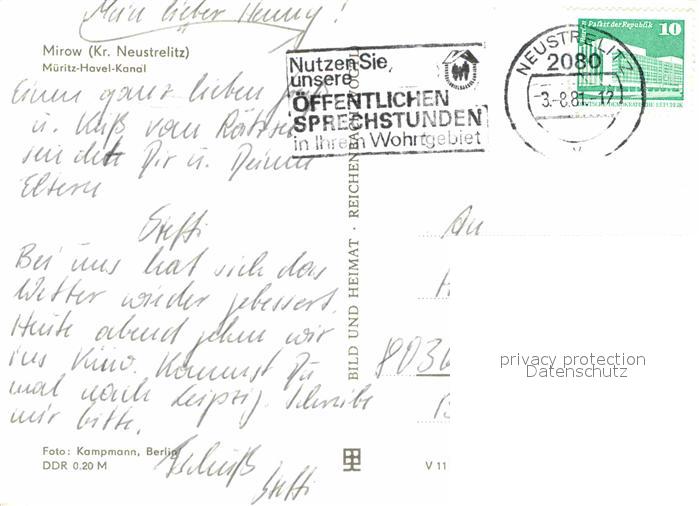 Mein lieber Henny!
Mirow (Kr. Neustrelitz)
Müritz-Havel-Kanal
Einen ganz lieben
u. Kuß vom
sendet Dir u. Deinen
Eltern
Steffi
Bei uns hat sich das
Wetter wieder gebessert.
Heute abend gehen wir
ins Kino. Kommst Du
mal nach Leipzig. Schreibe
mir bitte.
Tschüß
Steffi
Foto: Kampmann, Berlin
DDR 0.20 M
BILD UND HEIMAT · REICHENBACH
V 11
Nutzen Sie
unsere
ÖFFENTLICHEN
SPRECHSTUNDEN
in Ihrem Wohngebiet
NEUSTRELITZ
2080
-3.-8.81. 12
v
Palast der Republik
10
An
privacy protection
Datenschutz